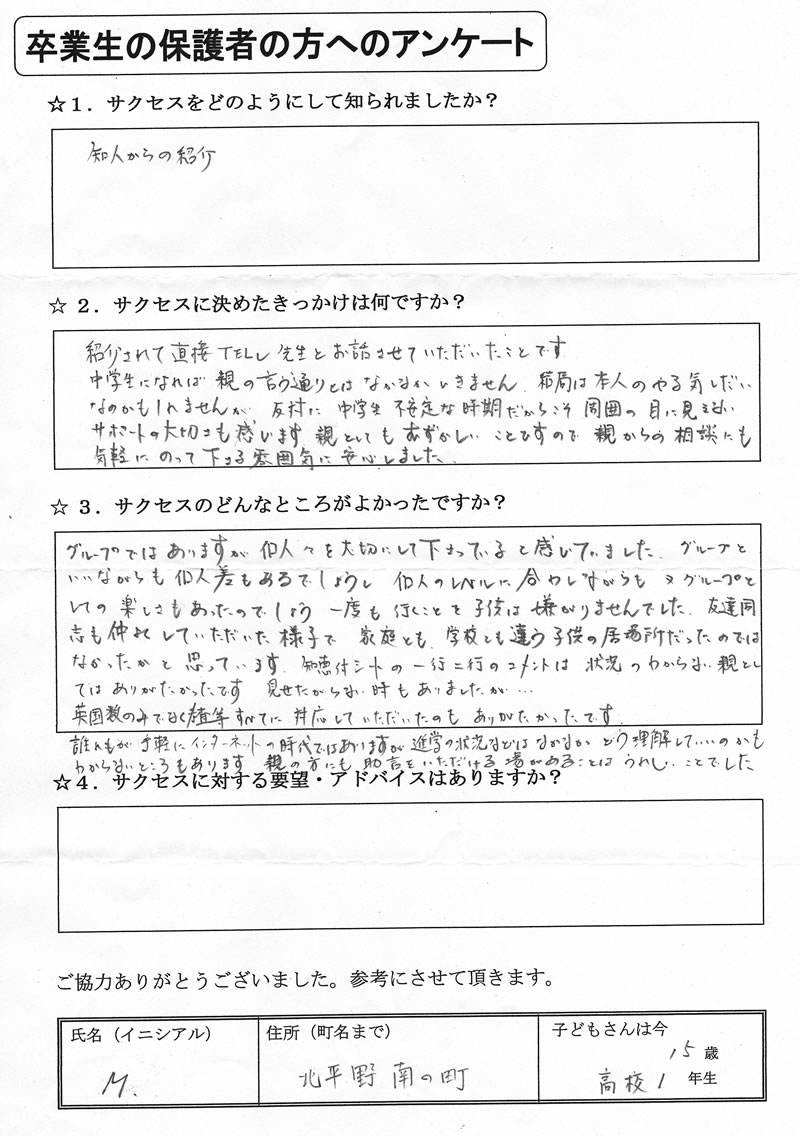 卒業生の保護者の方へのアンケート
☆１．サクセスをどのようにして知られましたか？
知人からの紹介
☆ ２．サクセスに決めたきっかけは何ですか？
紹介されて直接TELし先生とお話させていただいたことです
中学生になれば親の言う通りとはなかなかいきません。結局は本人のやる気しだい
なのかもしれませんが、反対に中学生 不安定な時期だからこそ周囲の目に見えない
サポートの大切さも感じます 親としてもむずかしいことですので親からの相談にも
気軽にのって下さる雰囲気に安心しました。
☆ ３．サクセスのどんなところがよかったですか？
グループではありますが個人々を大切にして下さっていると感じていました。グループと
いいながらも個人差もあるでしょうし 個人のレベルに合わしながらも又グループと
しての楽しさもあったのでしょう 一度も行くことを子供は嫌がりませんでした。友達同
志も仲良くしていただいた様子で 家庭とも、学校とも違う子供の居場所だったのでは
なかったかと思っています。知恵付シートの一行二行のコメントは状況のわからない親とし
てはありがたかったです 見せたがらない時もありましたが…
英国数のみでなく 等すべてに対応していただいたのもありがたかったです。
誰れもが手軽にインターネットの時代ではありますが進学の状況などはなかなかどう理解していいのかも
わからないところもあります 親の方にも助言をいただける場があることはうれしいことでした
☆４．サクセスに対する要望・アドバイスはありますか？
ご協力ありがとうございました。参考にさせて頂きます。
氏名（イニシアル） 住所（町名まで） 子どもさんは今
M. 北平野南の町 15 歳
高校1 年生